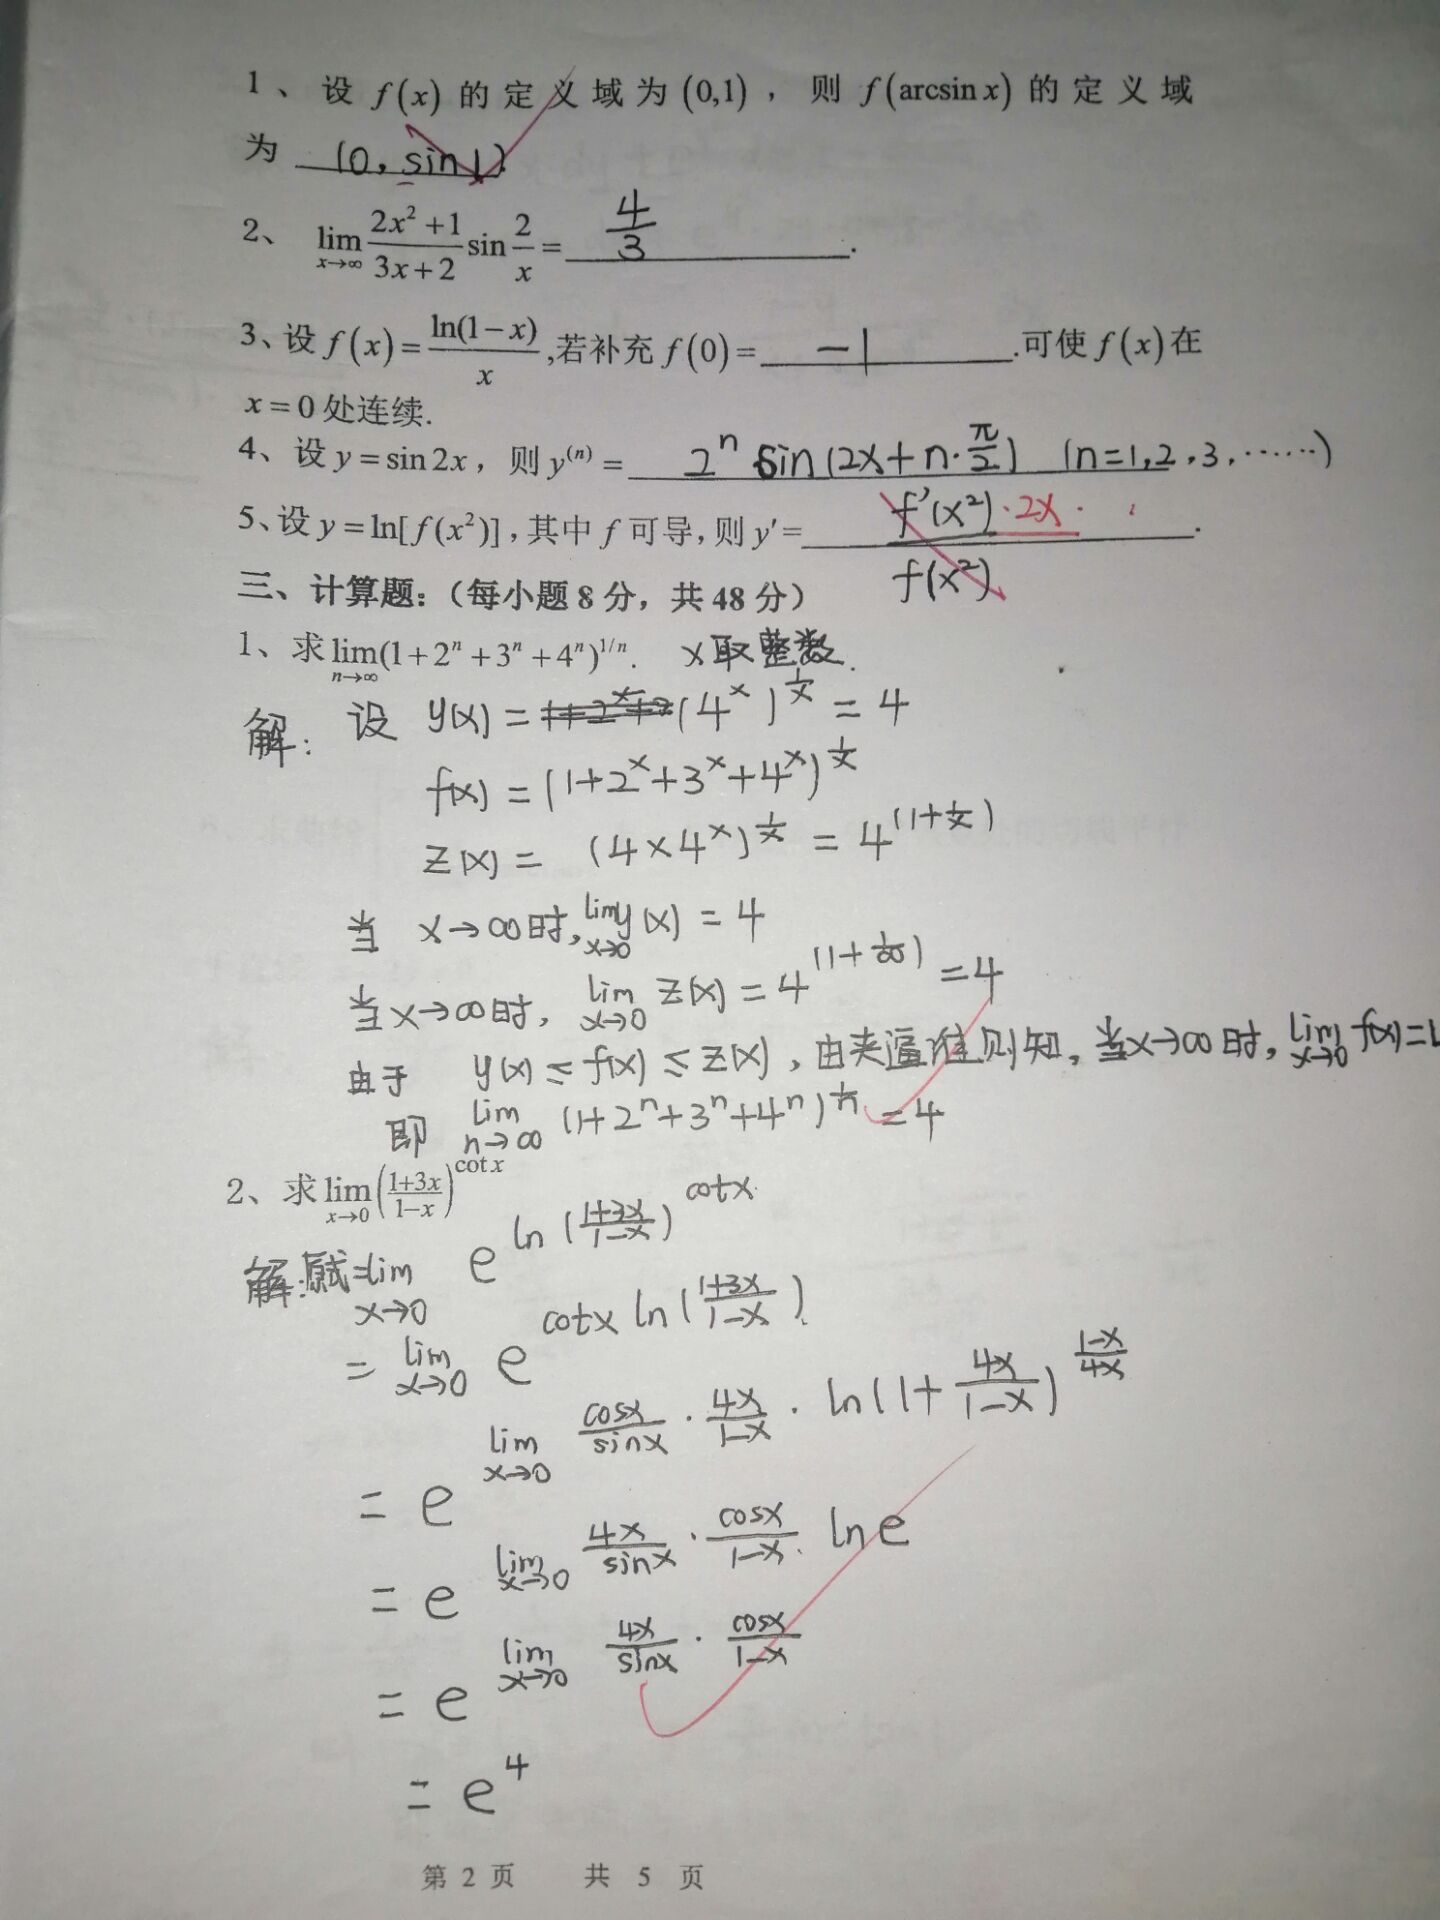 1、设 f(x) 的定义域为 (0,1)，则 f(arcsin x) 的定义域
为 (0, sin1).
2、 lim x→∞ (2x²+1)/(3x+2) sin 2/x = 4/3 .
3、设 f(x) = ln(1-x)/x ,若补充 f(0) = -1 .可使 f(x) 在
x = 0 处连续.
4、设 y = sin 2x，则 y⁽ⁿ⁾ = 2ⁿ sin(2x+n·π/2) (n=1,2,3,……)
5、设 y = ln[f(x²)],其中 f 可导,则 y′= f′(x²)·2x· / f(x²) .
三、计算题:（每小题 8 分，共 48 分）
1、求 lim n→∞ (1+2ⁿ+3ⁿ+4ⁿ)^(1/n). x取整数.
解: 设 y(x) = (4^x)^(1/x) = 4
f(x) = (1+2^x+3^x+4^x)^(1/x)
z(x) = (4×4^x)^(1/x) = 4^(1+1/x)
当 x→∞时, lim x→0 y(x) = 4
当x→∞时, lim x→0 z(x) = 4^(1+1/∞) = 4
由于 y(x) ≤ f(x) ≤ z(x), 由夹逼准则知, 当x→∞时, lim x→0 f(x) =
即 lim n→∞ (1+2ⁿ+3ⁿ+4ⁿ)^(1/n) = 4
2、求 lim x→0 ((1+3x)/(1-x))^(cot x)
解:原式= lim x→0 e^(ln((1+3x)/(1-x))^(cotx))
= lim x→0 e^(cotx ln((1+3x)/(1-x)))
= e^(lim x→0 cosx/sinx · 4x/(1-x) · ln(1+4x/(1-x))^((1-x)/4x))
= e^(lim x→0 4x/sinx · cosx/(1-x) · ln e)
= e^(lim x→0 4x/sinx · cosx/(1-x))
= e⁴
第 2 页 共 5 页